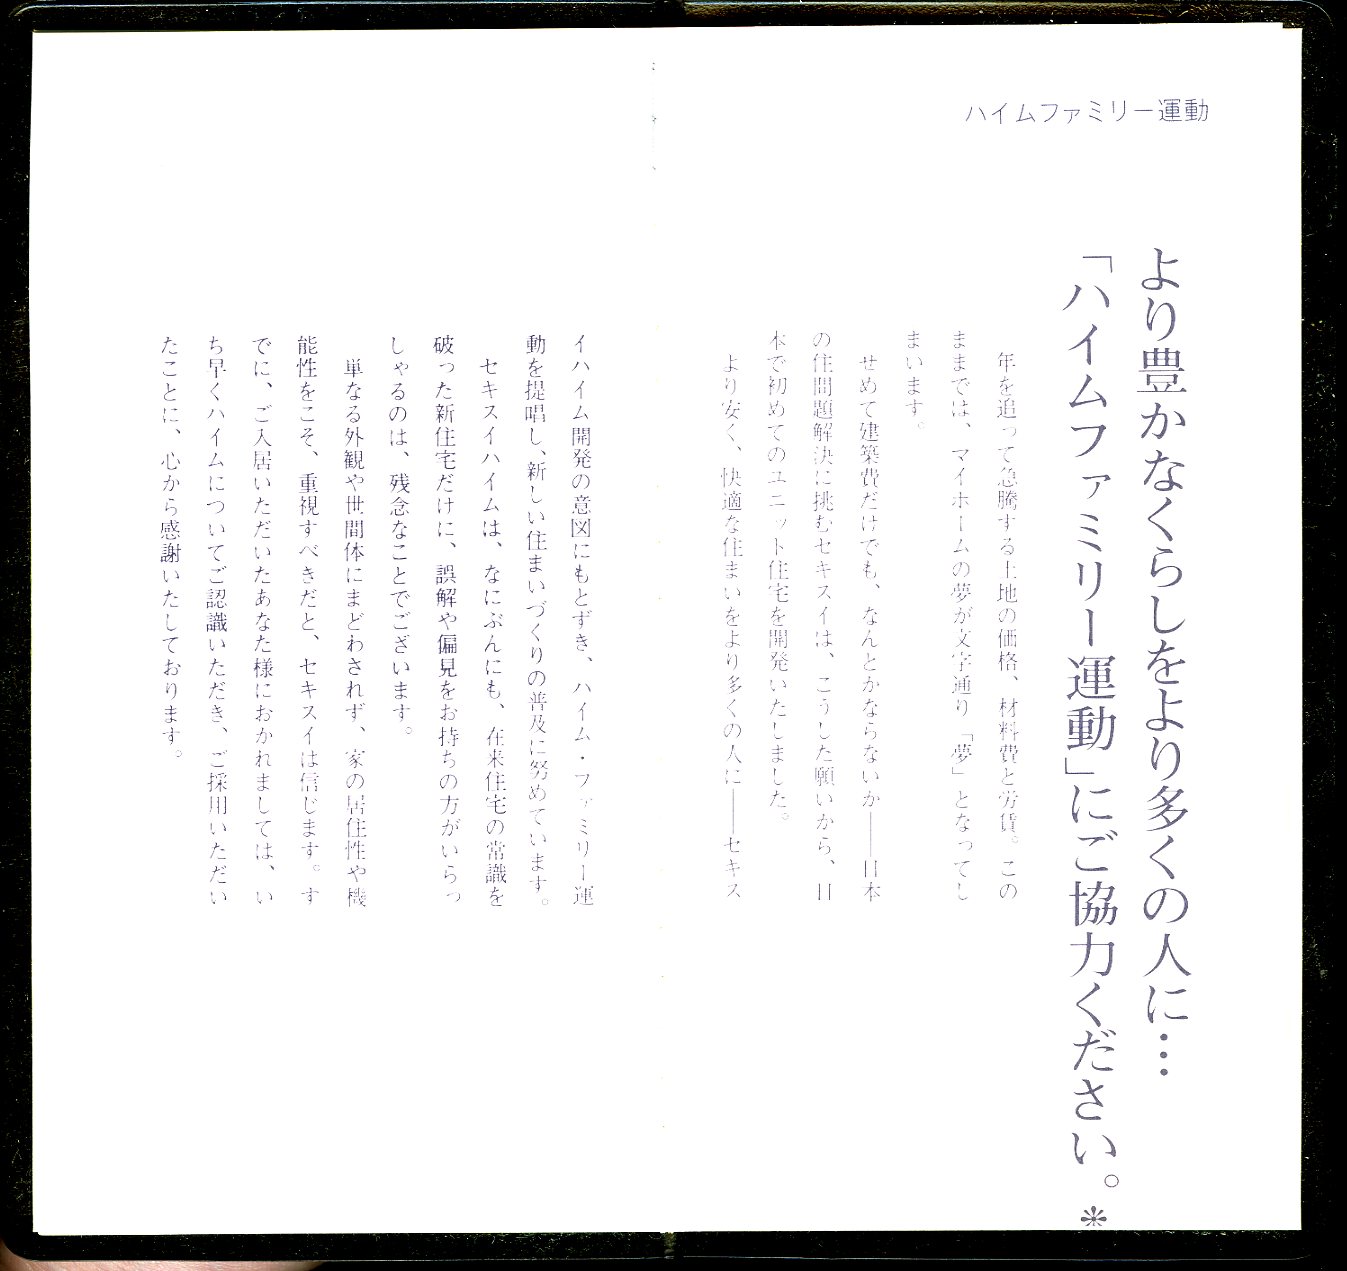 ハイムファミリー運動
より豊かなくらしをより多くの人に…
「ハイムファミリー運動」にご協力ください。＊
年を追って急騰する土地の価格、材料費と労賃。この
ままでは、マイホームの夢が文字通り「夢」となってし
まいます。
せめて建築費だけでも、なんとかならないか――日本
の住問題解決に挑むセキスイは、こうした願いから、日
本で初めてのユニット住宅を開発いたしました。
より安く、快適な住まいをより多くの人に――セキス
イハイム開発の意図にもとずき、ハイム・ファミリー運
動を提唱し、新しい住まいづくりの普及に努めています。
セキスイハイムは、なにぶんにも、在来住宅の常識を
破った新住宅だけに、誤解や偏見をお持ちの方がいらっ
しゃるのは、残念なことでございます。
単なる外観や世間体にまどわされず、家の居住性や機
能性をこそ、重視すべきだと、セキスイは信じます。す
でに、ご入居いただいたあなた様におかれましては、い
ち早くハイムについてご認識いただき、ご採用いただい
たことに、心から感謝いたしております。